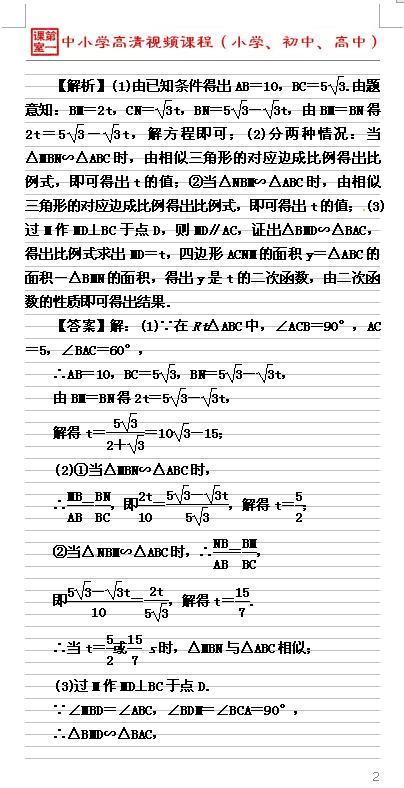 课第
堂一
中小学高清视频课程（小学、初中、高中）
【解析】(1)由已知条件得出AB=10，BC=5√3.由题
意知：BM=2t，CN=√3t，BN=5√3-√3t，由BM=BN得
2t=5√3-√3t，解方程即可；(2)分两种情况：①当
△MBN∽△ABC时，由相似三角形的对应边成比例得出比
例式，即可得出t的值；②当△NBM∽△ABC时，由相似
三角形的对应边成比例得出比例式，即可得出t的值；(3)
过M作MD⊥BC于点D，则MD∥AC，证出△BMD∽△BAC，
得出比例式求出MD=t，四边形ACNM的面积y=△ABC的
面积-△BMN的面积，得出y是t的二次函数，由二次函
数的性质即可得出结果.
【答案】解：(1)∵在Rt△ABC中，∠ACB=90°，AC
=5，∠BAC=60°，
∴AB=10，BC=5√3，BN=5√3-√3t，
由BM=BN得2t=5√3-√3t，
解得t=5√3/(2+√3)=10√3-15；
(2)①当△MBN∽△ABC时，
∴MB/AB=BN/BC，即2t/10=(5√3-√3t)/5√3，解得t=5/2；
②当△NBM∽△ABC时，∴NB/AB=BM/BC，
即(5√3-√3t)/10=2t/5√3，解得t=15/7.
∴当t=5/2或15/7 s时，△MBN与△ABC相似；
(3)过M作MD⊥BC于点D.
∵∠MBD=∠ABC，∠BDM=∠BCA=90°，
∴△BMD∽△BAC，
2